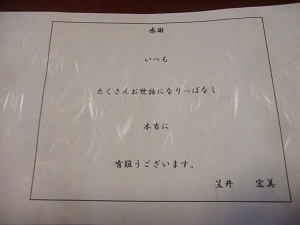 感謝
いつも
たくさんお世話になりっぱなし
本当に
有難うございます。
笠井　宏美